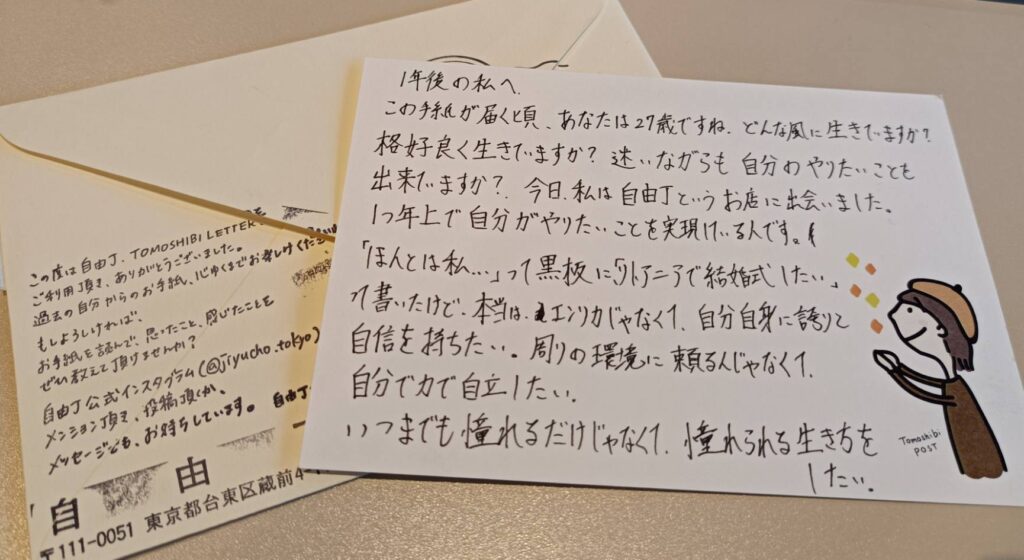 この度は自由丁、TOMOSHIBI LETTERを
ご利用頂き、ありがとうございました。
過去の自分からのお手紙、心ゆくまでお楽しみください
もしよろしければ、
お手紙を読んで、思ったこと、感じたことを
ぜひ教えて頂けませんか?
自由丁公式インスタグラム(@jiyucho.tokyo)
メンション頂き、投稿頂くか、
メッセージでも、お待ちしています。 自由丁
自 由
〒111-0051 東京都台東区蔵前4
1年後の私へ.
この手紙が届く頃、あなたは27歳ですね. どんな風に生きていますか?
格好良く生きていますか? 迷いながらも 自分のやりたいことを
出来ていますか?. 今日、私は自由丁というお店に出会いました。
1つ年上で自分がやりたいことを実現している人です。
「ほんとは私...」って黒板に「リトアニアで結婚式したい」
って書いたけど、本当は、エンリカじゃなくて、自分自身に誇りと
自信を持ちたい。周りの環境に頼るんじゃなくて、
自分で力で自立したい。
いつまでも憧れるだけじゃなくて、憧れられる生き方を
したい。
Tomoshibi
POST